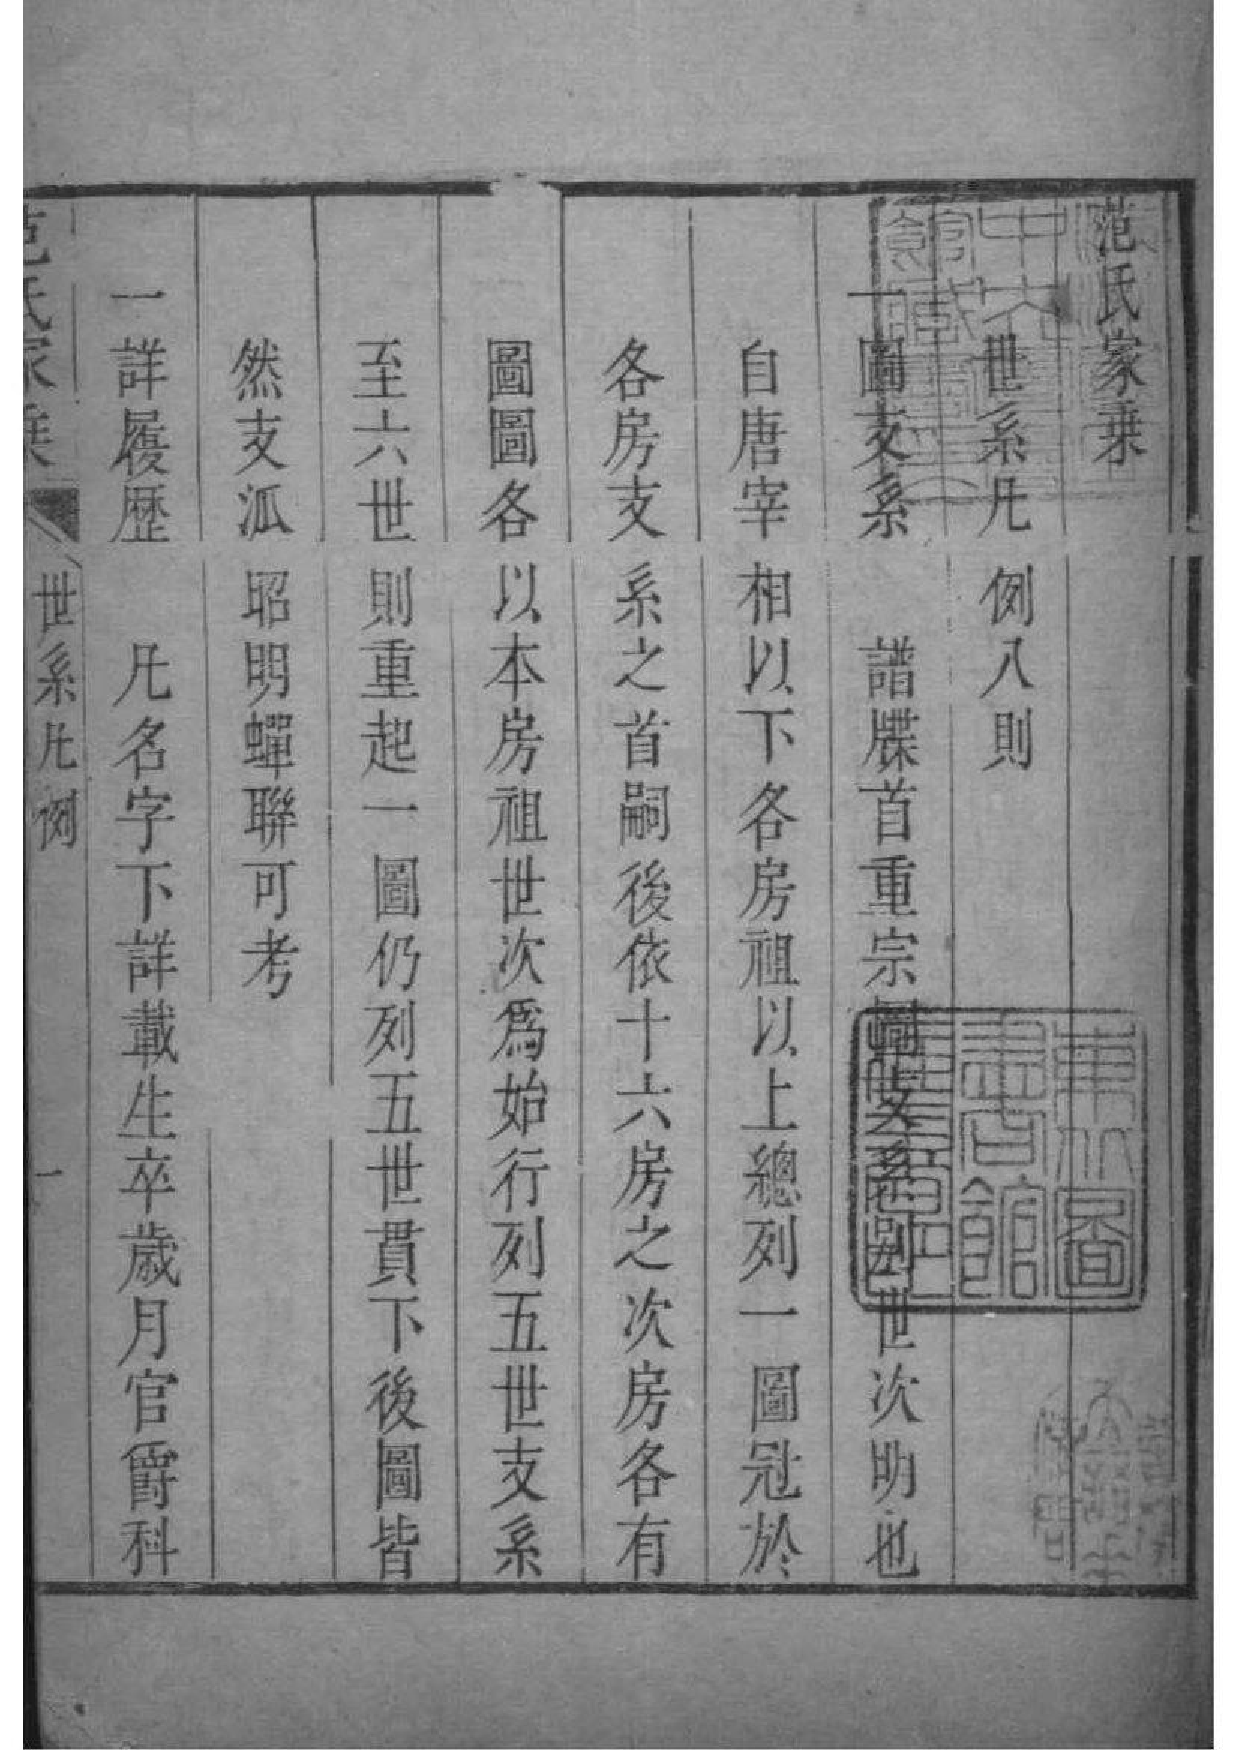 范氏家乘
世系凡例八則
一圖支系　譜牒首重宗嗣支系別世次明也
自唐宰相以下各房祖以上總列一圖冠於
各房支系之首嗣後依十六房之次房各有
圖圖各以本房祖世次為始行列五世支系
至六世則重起一圖仍列五世貫下後圖皆
然支派昭明蟬聯可考
一詳履歷　凡名字下詳載生卒歲月官爵科
范氏家乘　世系凡例　一